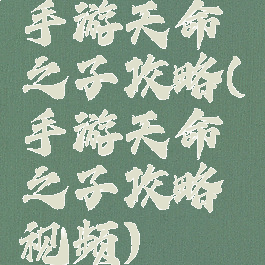 手游天命
之子攻略(
手游天命
之子攻略
视频)